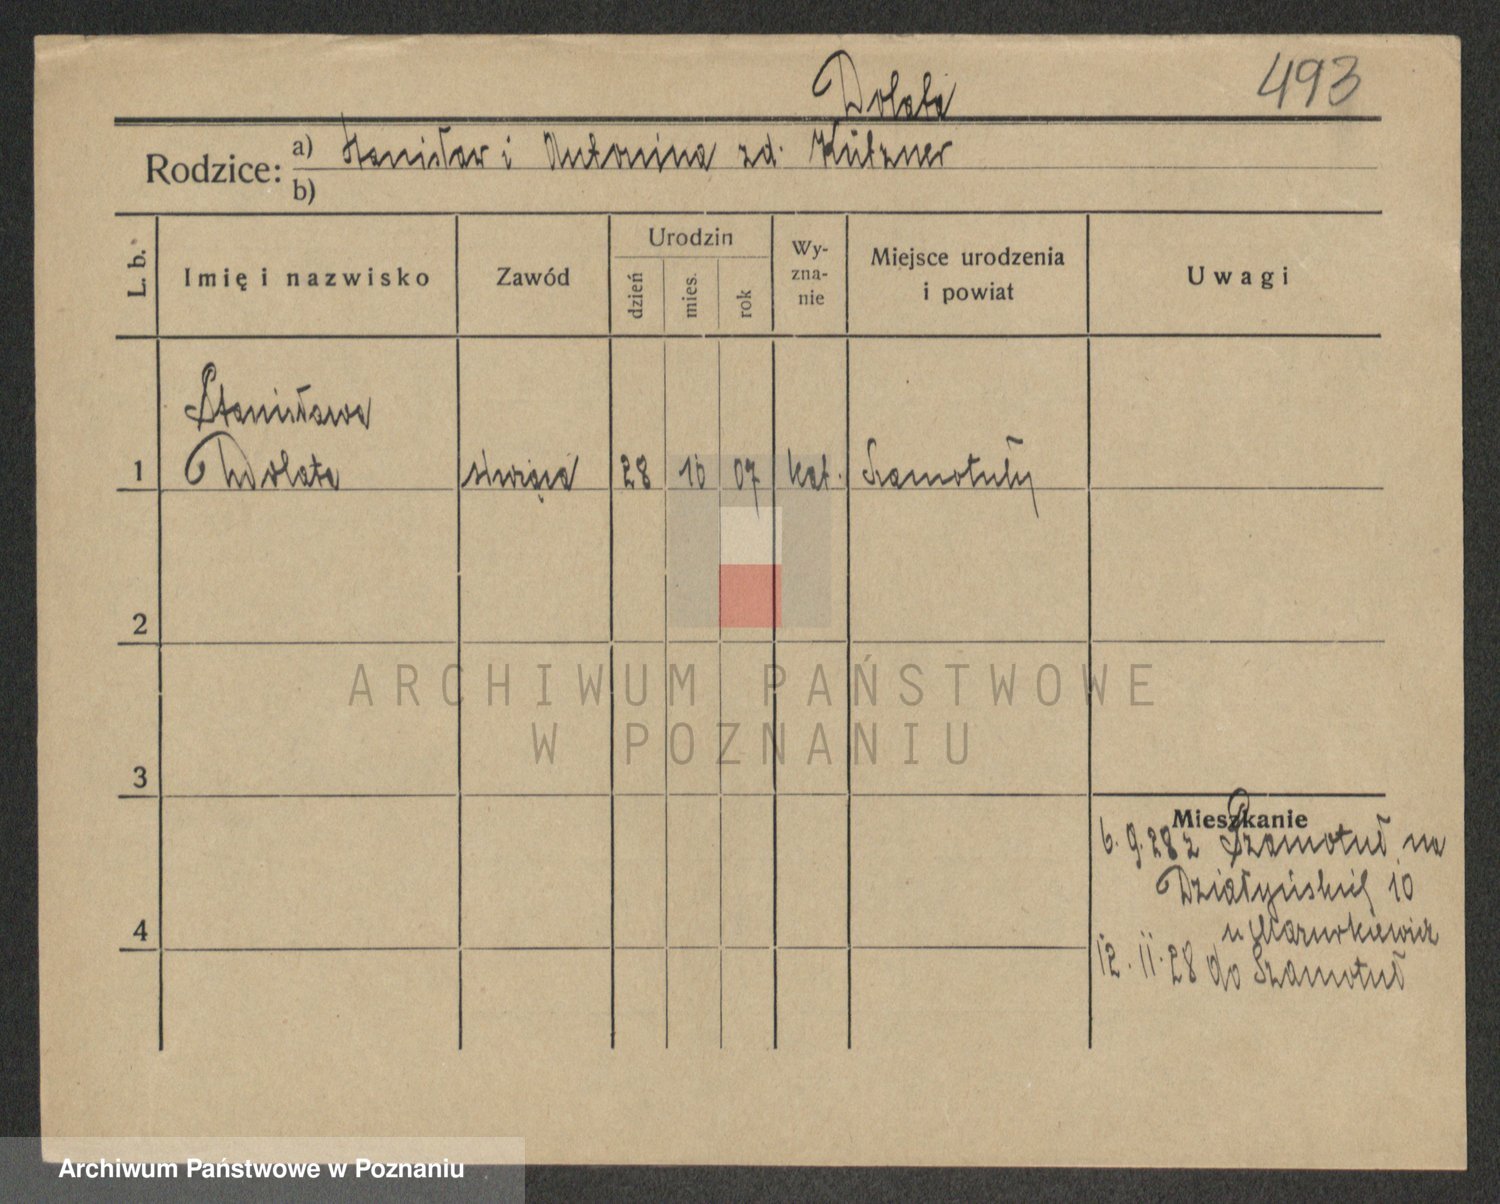 493
Dolata
Rodzice: a) Stanisław i Antonina zd. Kützner
b)
L. b. Imię i nazwisko Zawód Urodzin dzień mies. rok Wy-zna-nie Miejsce urodzenia i powiat Uwagi
Stanisława
1 Dolata 28 10 07 kat. Szamotuły
2
3
4
Mieszkanie
6.9.28 z Szamotuł na
Działyńskich 10
u Mazurkiewicz
12.11.28 do Szamotuł
ARCHIWUM PAŃSTWOWE
W POZNANIU
Archiwum Państwowe w Poznaniu